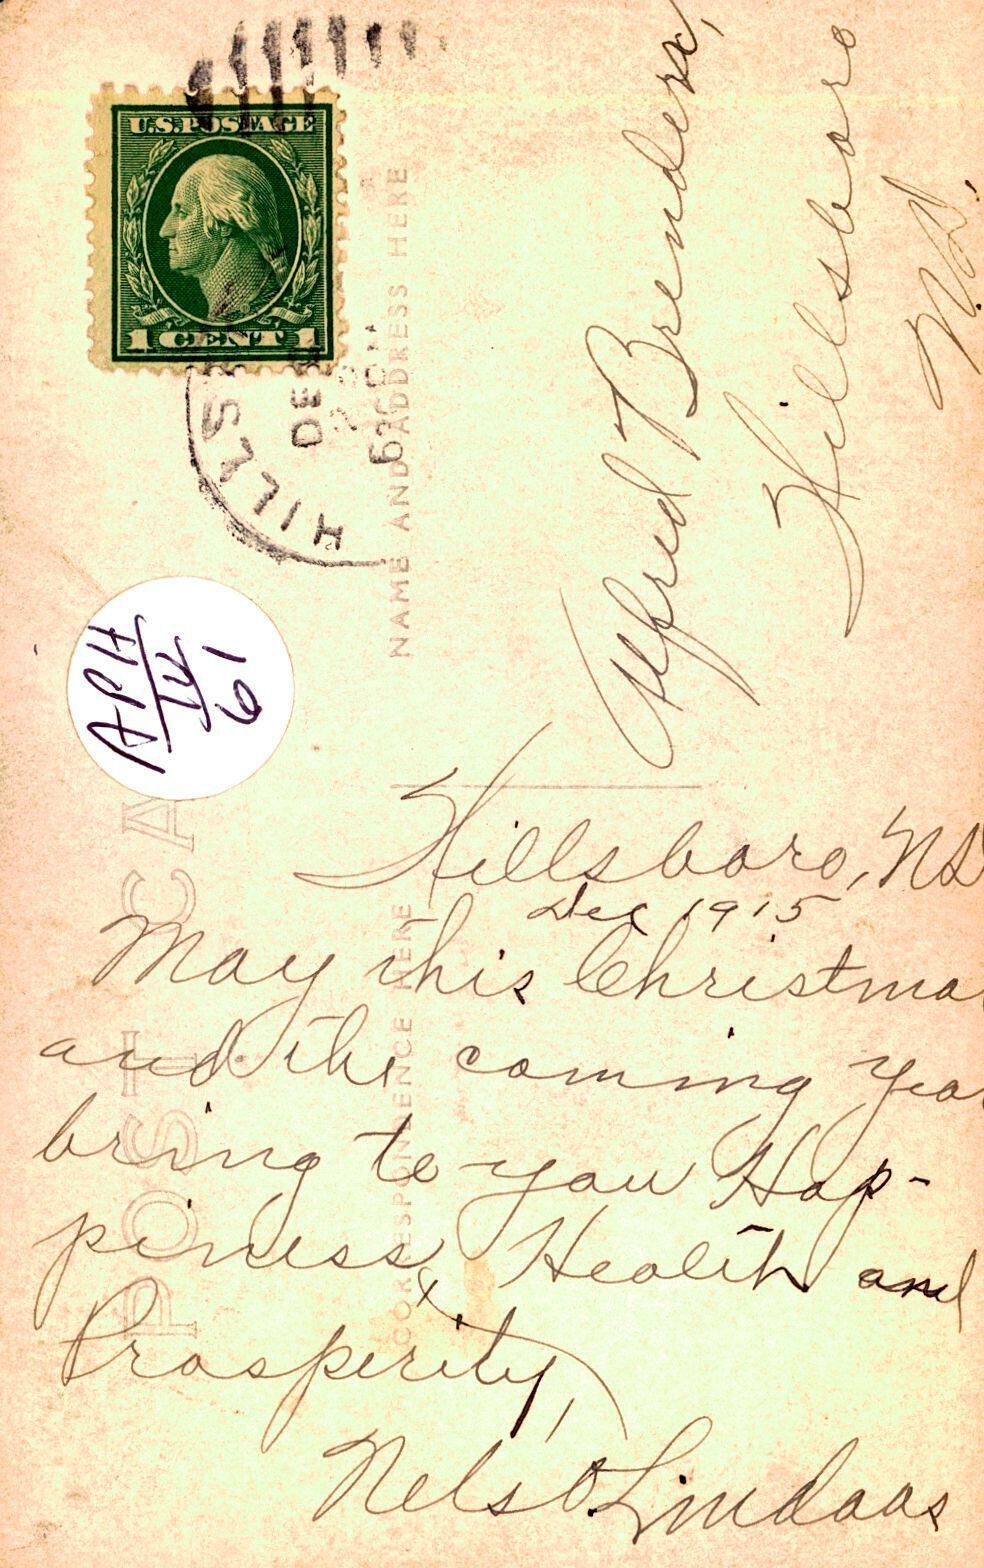 U.S. POSTAGE
1 CENT 1
HILLS
DE
NAME AND ADDRESS HERE
Alfred Brenden,
Hillsboro
N.D.
APH
IV
61
POST CA
CORRESPONDENCE HERE
Hillsboro, ND
Dec 1915
May this Christma
and the coming yea
bring to you Hap-
piness, Health and
Prosperity,
Nels O. Lindaas